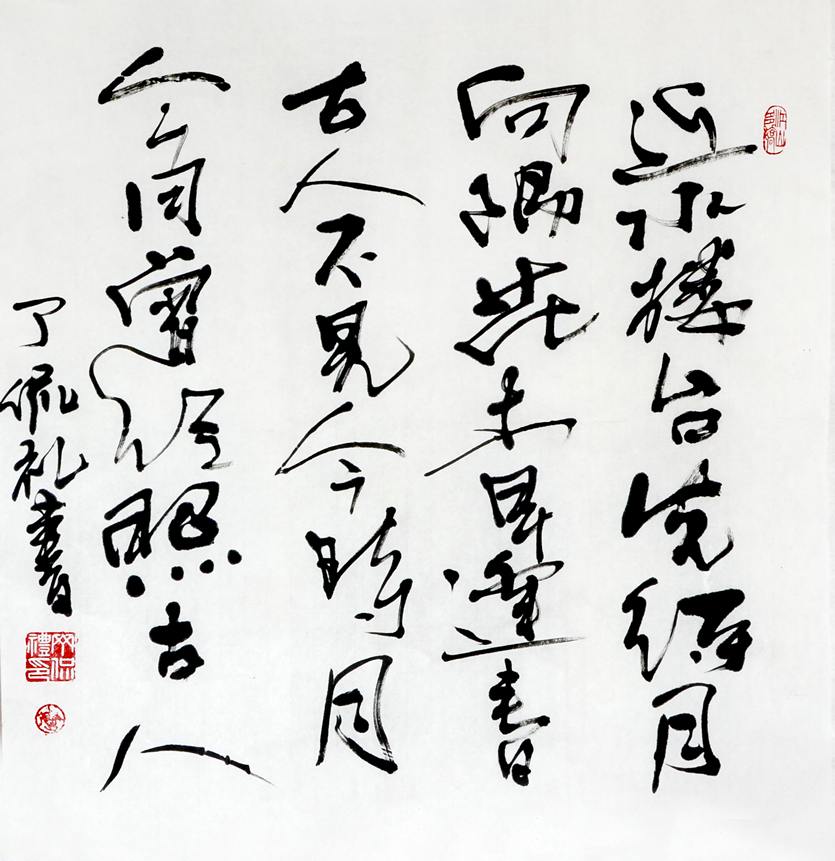 近水楼台先得月
向阳花木早逢春
古人不見今時月
今月曾经照古人
丁侃礼書